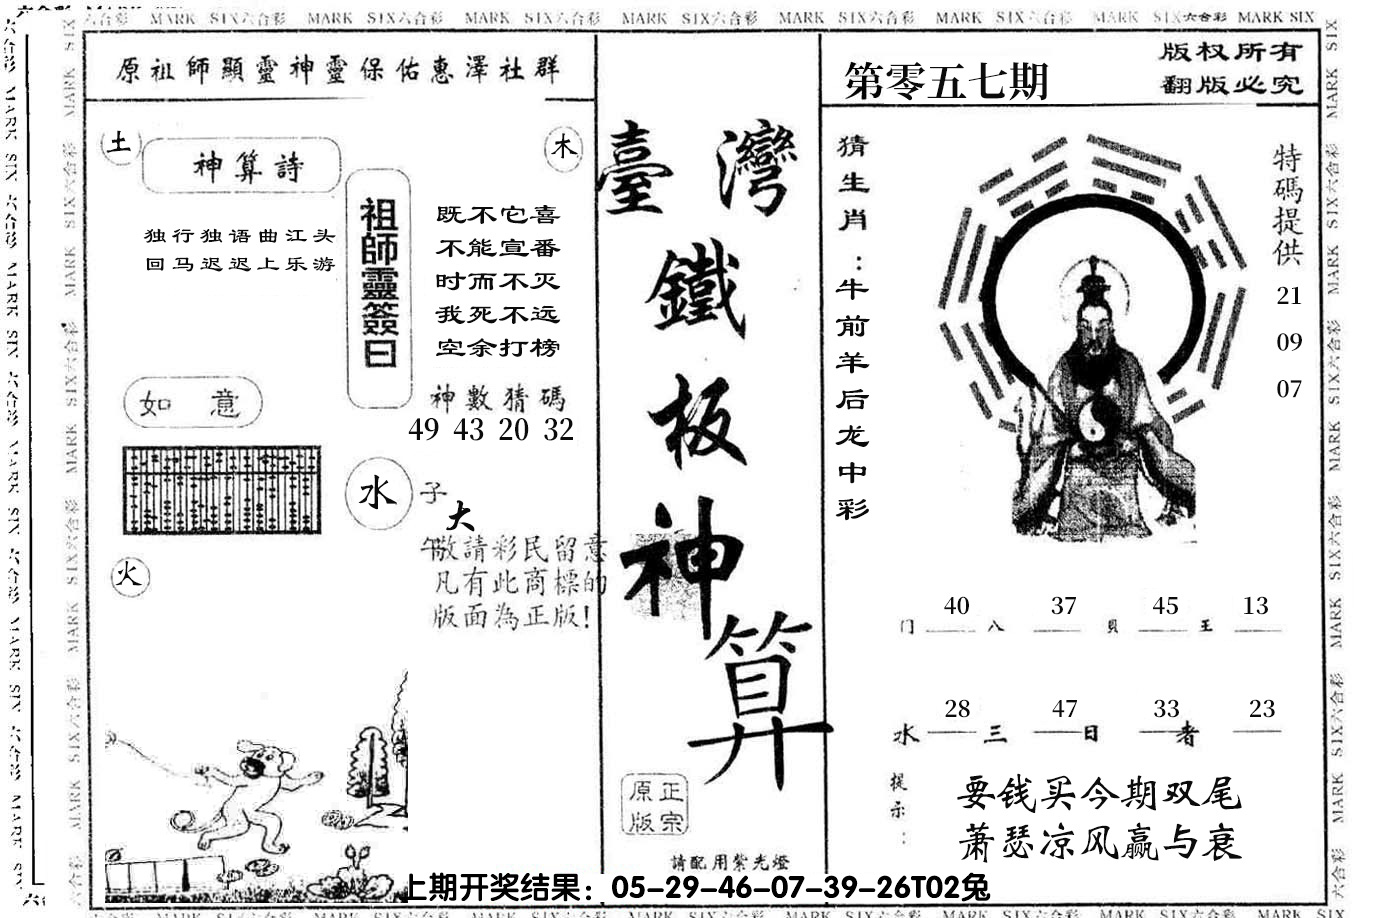 MARK SIX六合彩 MARK SIX六合彩 MARK SIX六合彩 MARK SIX六合彩 MARK SIX六合彩 MARK SIX六合彩 MARK SIX六合彩 MARK SIX
原祖師顯靈神靈保佑惠澤社群
土
神算詩
木
独行独语曲江头
回马迟迟上乐游
祖師靈簽曰
既不它喜
不能宣番
时而不灭
我死不远
空余打榜
如意
神數猜碼
49 43 20 32
水
子
大
午
敬請彩民留意
凡有此商標的
版面為正版!
火
臺灣
鐵
板
神
算
正宗
原版
請配用紫光燈
第零五七期
版权所有
翻版必究
猜生肖：牛前羊后龙中彩
特碼提供
21
09
07
40 37 45 13
门 八 貝 王
28 47 33 23
水 三 日 者
提示：
要钱买今期双尾
萧瑟凉风赢与衰
上期开奖结果：05-29-46-07-39-26T02兔